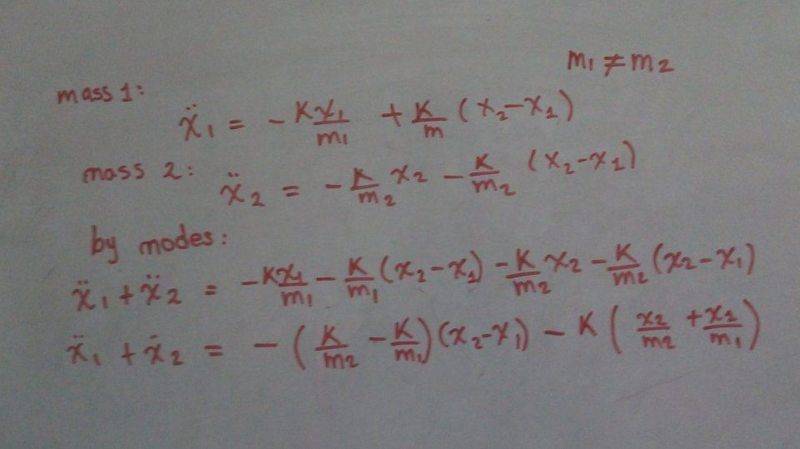 m₁ ≠ m₂
mass 1:
ẍ₁ = - Kx₁/m₁ + K/m (x₂-x₁)
mass 2: ẍ₂ = - K/m₂ x₂ - K/m₂ (x₂-x₁)
by modes:
ẍ₁ + ẍ₂ = - Kx₁/m₁ - K/m₁ (x₂-x₁) - K/m₂ x₂ - K/m₂ (x₂-x₁)
ẍ₁ + ẍ₂ = - (K/m₂ - K/m₁) (x₂-x₁) - K (x₂/m₂ + x₂/m₁)